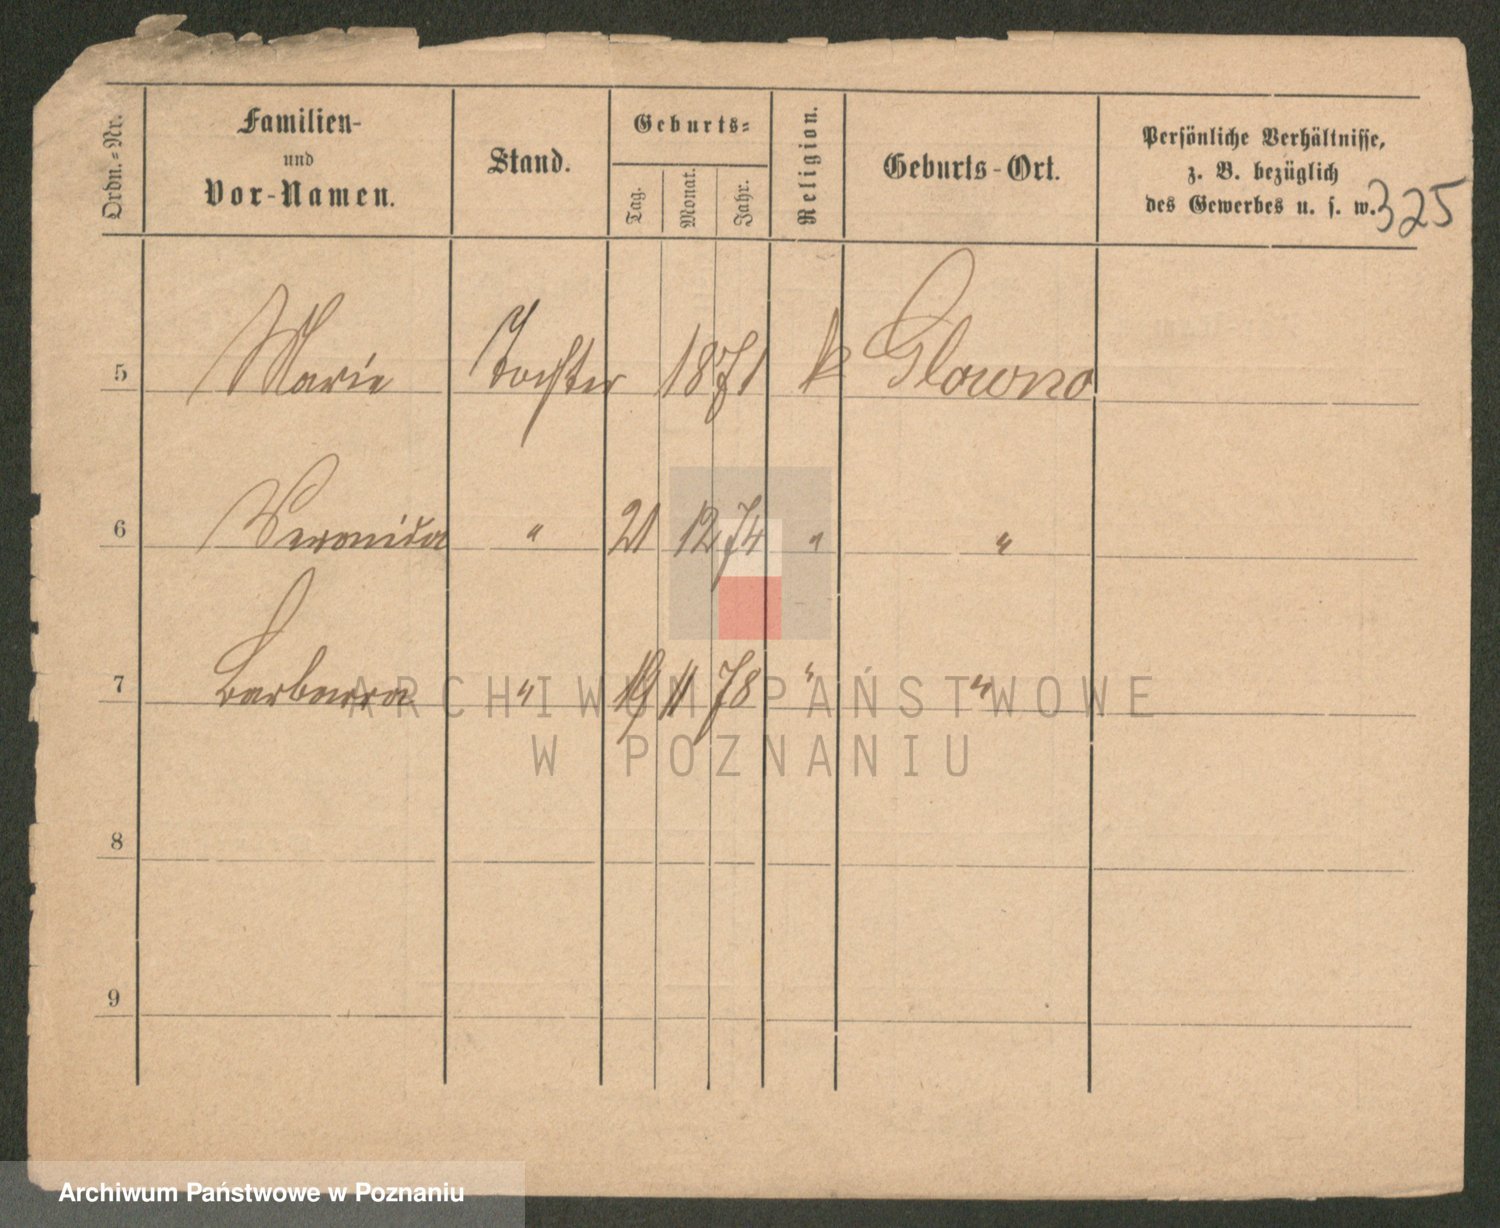 Ordn.-Nr.
Familien-
und
Vor-Namen.
Stand.
Geburts-
Tag.
Monat.
Jahr.
Religion.
Geburts-Ort.
Persönliche Verhältnisse,
z. B. bezüglich
des Gewerbes u. s. w.
325
5 Marie Tochter 1871 k Glowno
6 Veronika " 21 12 74 " "
7 Barbara " 19 11 78 " "
8
9
ARCHIWUM PAŃSTWOWE
W POZNANIU
Archiwum Państwowe w Poznaniu